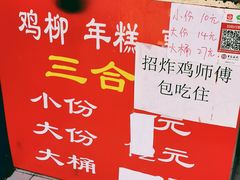 鸡柳 年糕
三合
小份 元
大份 元
大桶 元
小份 10元
大份 14元
大桶 27元
招炸鸡师傅
包吃住